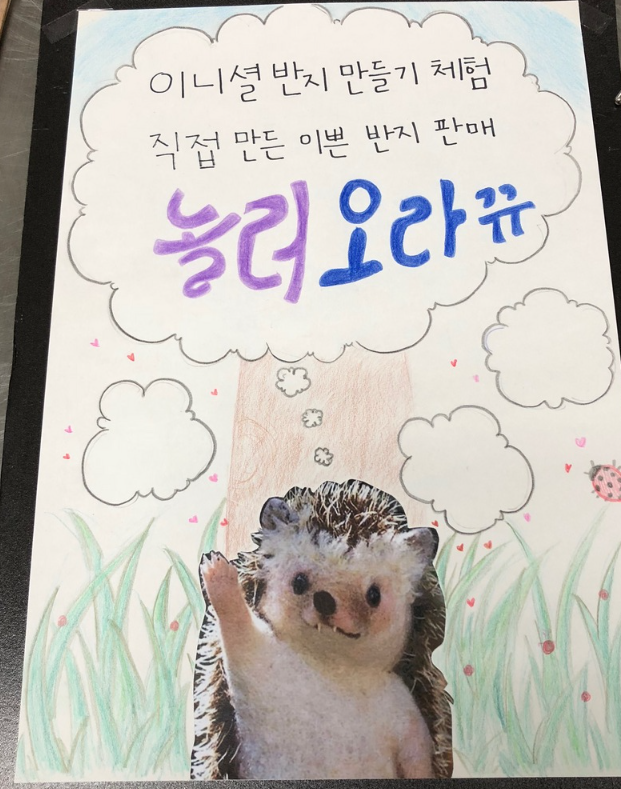 이니셜 반지 만들기 체험
직접 만든 이쁜 반지 판매
놀러 오라뀨